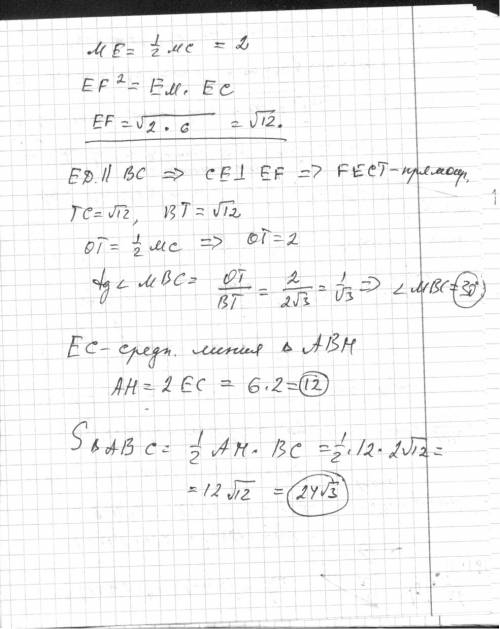 ME = 1/2 MC = 2
EF² = EM · EC
EF = √2 · 6 = √12.
ED || BC => CE ⊥ EF => FECT - прямоуг.
TC = √12, BT = √12
OT = 1/2 MC => OT = 2
tg < MBC = OT/BT = 2/2√3 = 1/√3 => < MBC = 30°
EC - средн. линия ∆ ABH
AH = 2 EC = 6 · 2 = 12
S∆ABC = 1/2 AH · BC = 1/2 · 12 · 2√12 =
= 12√12 = 24√3